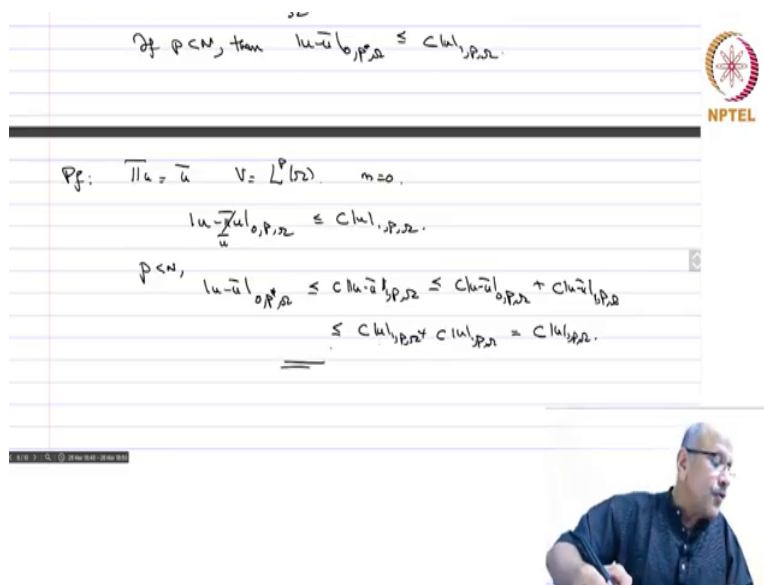 If p<N, then |u-ū|₀,p*,Ω ≤ C|u|₁,p,Ω.
NPTEL
Pf: Πu = ū V = Lᵖ(Ω). m=0.
|u-Πu|₀,p,Ω ≤ C|u|₁,p,Ω.
ū
p<N,
|u-ū|₀,p*,Ω ≤ C‖u-ū‖₁,p,Ω ≤ C|u-ū|₀,p,Ω + C|u-ū|₁,p,Ω
≤ C|u|₁,p,Ω + C|u|₁,p,Ω = C|u|₁,p,Ω.